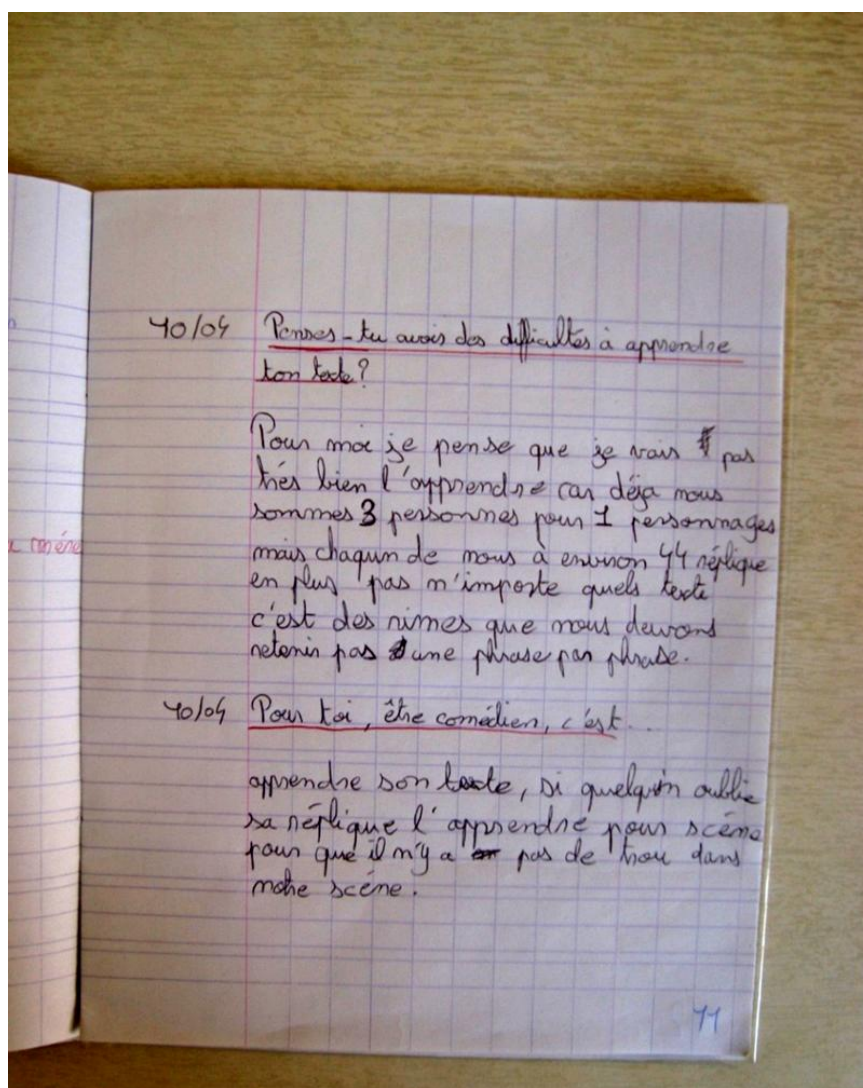 10/04 Penses-tu avoir des difficultés à apprendre
ton texte?
Pour moi je pense que je vais pas
très bien l'apprendre car déja nous
sommes 3 personnes pour 1 personnages
mais chaqun de nous à environ 44 réplique
en plus pas n'importe quels texte
c'est des rimes que nous devons
retenir pas une phrase par phrase.
10/04 Pour toi, être comédien, c'est...
apprendre son texte, si quelqu'un oublie
sa réplique l'apprendre pour scène
pour que il n'y a pas de trou dans
notre scène.
11